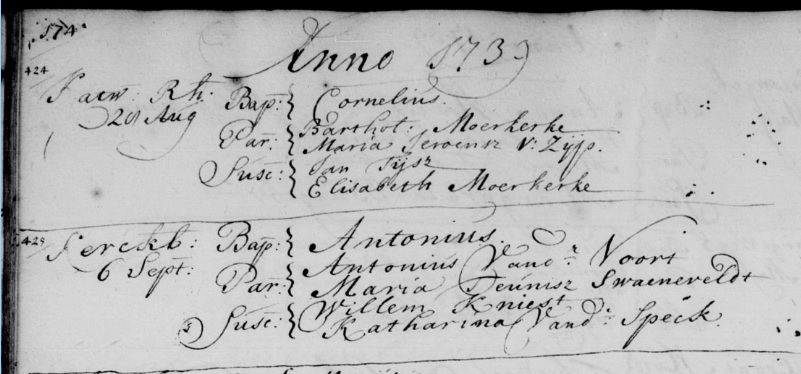 574
Anno 1739
424
Pacw: Rh: Bap: Cornelius.
28 Aug Barthol: Moerkerke
Par: Maria Jeroensz v: Zyp.
Jan Tijsz
Susc: Elisabeth Moerkerke
425
Jerckb: Bap: Antonius.
6 Sept: Antonius Vandr Voort
Par: Maria Deunisz Swaeneveldt
Willem Kniest
Susc: Katharina Vandr Speck.